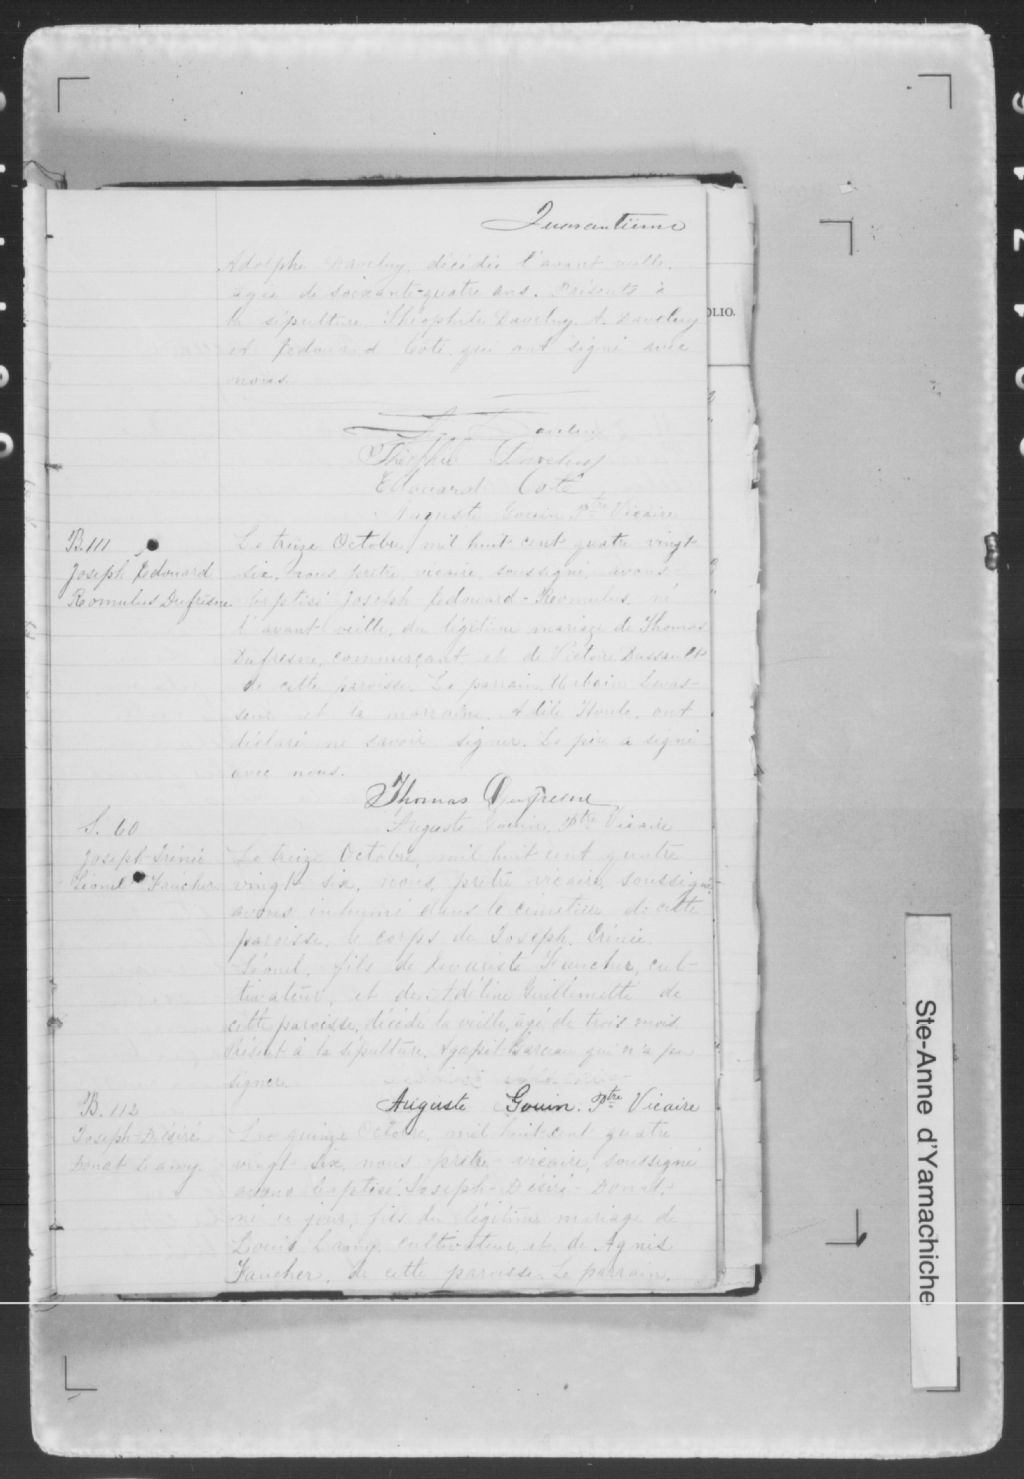 Quarantième
Adolphe Daveluy, décédée l'avant veille,
agée de soixante-quatre ans. Présents à
la sépulture, Théophile Daveluy, A. Daveluy
et Edouard Coté qui ont signé avec
nous.
OLIO.
Théophile Daveluy
Edouard Coté
Auguste Gouin Ptre Vicaire
B. 111
Joseph Edouard
Romulus Dufresne
Le treize Octobre, mil huit cent quatre vingt
six, nous prêtre, vicaire, soussigné, avons
baptisé Joseph Edouard-Romulus, né
l'avant veille, du légitime mariage de Thomas
Dufresne, commerçant et de Victoire Dussault
de cette paroisse. Le parrain, Urbain Levas-
seur et la marraine, Adèle Houle, ont
déclaré ne savoir signer. Le père a signé
avec nous.
Thomas Dufresne
Auguste Gouin, Ptre Vicaire
S. 60
Joseph-Irénée
Léonel Faucher
Le treize Octobre, mil huit cent quatre
vingt six, nous, prêtre vicaire, soussigné,
avons inhumé dans le cimetière de cette
paroisse, le corps de Joseph, Irénée
Léonel, fils de Evariste Faucher, cul-
tivateur, et de Adéline Guillemette de
cette paroisse, décédé la veille, âgé de trois mois.
Présent à la sépulture, Agapit qui n'a pu
signer.
Auguste Gouin. Ptre Vicaire
B. 112
Joseph-Désiré
Donat Lamy.
Le quinze Octobre, mil huit-cent quatre
vingt six, nous prêtre vicaire, soussigné
avons baptisé Joseph-Désiré-Donat,
né ce jour, fils du légitime mariage de
Louis Lamy, cultivateur, et de Agnès
Faucher, de cette paroisse. Le parrain,
Ste-Anne d'Yamachiche